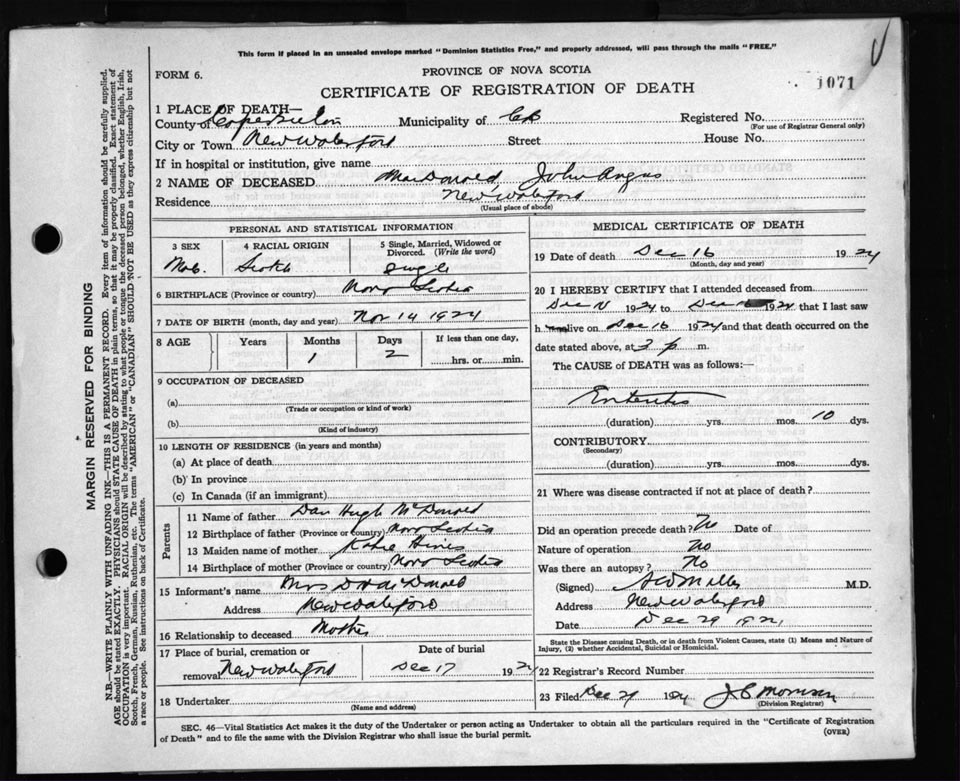 This form if placed in an unsealed envelope marked "Dominion Statistics Free," and properly addressed, will pass through the mails "FREE."
FORM 6.
PROVINCE OF NOVA SCOTIA
1071
CERTIFICATE OF REGISTRATION OF DEATH
1 PLACE OF DEATH—
County of Cape Breton Municipality of CB Registered No.
(For use of Registrar General only)
City or Town New Waterford Street House No.
If in hospital or institution, give name
2 NAME OF DECEASED MacDonald, John Angus
Residence New Waterford
(Usual place of abode)
PERSONAL AND STATISTICAL INFORMATION
3 SEX 4 RACIAL ORIGIN 5 Single, Married, Widowed or Divorced. (Write the word)
Scotch single
6 BIRTHPLACE (Province or country) Nova Scotia
7 DATE OF BIRTH (month, day and year) Nov 14 1924
8 AGE Years Months Days If less than one day,
1 2 hrs. or min.
9 OCCUPATION OF DECEASED
(a)
(Trade or occupation or kind of work)
(b)
(Kind of industry)
10 LENGTH OF RESIDENCE (in years and months)
(a) At place of death
(b) In province
(c) In Canada (if an immigrant)
Parents
11 Name of father Dan Hugh McDonald
12 Birthplace of father (Province or country) Nova Scotia
13 Maiden name of mother Katie
14 Birthplace of mother (Province or country) Nova Scotia
15 Informant's name Mrs D
Address New Waterford
16 Relationship to deceased Mother
17 Place of burial, cremation or Date of burial
removal New Waterford Dec 17 1924
18 Undertaker
(Name and address)
MEDICAL CERTIFICATE OF DEATH
19 Date of death Dec 16 1924
(Month, day and year)
20 I HEREBY CERTIFY that I attended deceased from
Dec 1924 to Dec 16 1924 that I last saw
h alive on Dec 16 1924 and that death occurred on the
date stated above, at 3 p m.
The CAUSE of DEATH was as follows:—
Enteritis
(duration) yrs. mos. 10 dys.
CONTRIBUTORY
(Secondary)
(duration) yrs. mos. dys.
21 Where was disease contracted if not at place of death?
Did an operation precede death? No Date of
Nature of operation No
Was there an autopsy? No
(Signed) Miller M.D.
Address New Waterford
Date Dec 29
State the Disease causing Death, or in death from Violent Causes, state (1) Means and Nature of
Injury, (2) whether Accidental, Suicidal or Homicidal.
22 Registrar's Record Number
23 Filed Dec 1924 J C Morrison
(Division Registrar)
SEC. 46—Vital Statistics Act makes it the duty of the Undertaker or person acting as Undertaker to obtain all the particulars required in the "Certificate of Registration
of Death" and to file the same with the Division Registrar who shall issue the burial permit.
(OVER)
MARGIN RESERVED FOR BINDING
N.B.—WRITE PLAINLY WITH UNFADING INK—THIS IS A PERMANENT RECORD. Every item of information should be carefully supplied.
AGE should be stated EXACTLY. PHYSICIANS should STATE CAUSE OF DEATH in plain terms, so that it may be properly classified. Exact statement of
OCCUPATION is very important. RACIAL ORIGIN will be described by stating to what people or tongue the deceased person belonged, whether English, Irish,
Scotch, French, German, Russian, Ruthenian, etc. The terms "AMERICAN" or "CANADIAN" SHOULD NOT BE USED as they express citizenship but not
a race or people. See instructions on back of Certificate.